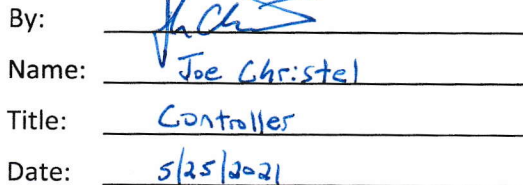 By:
Name: Joe Christel
Title: Controller
Date: 5/25/2021